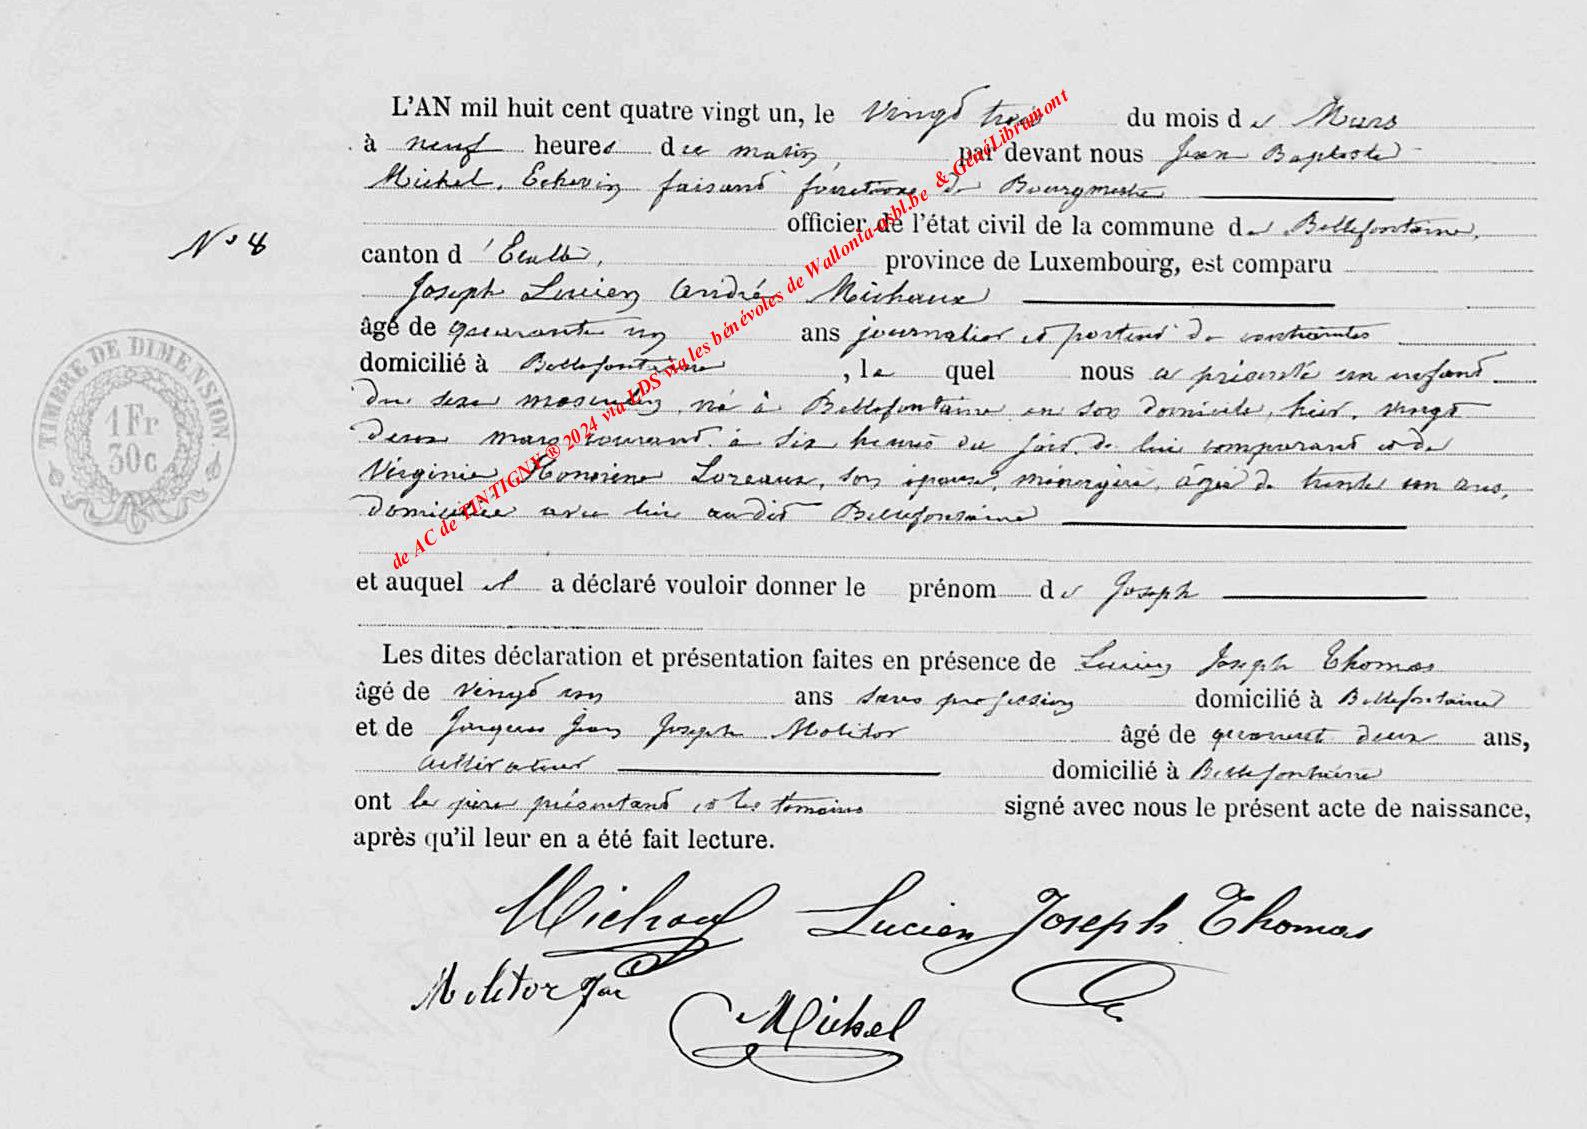 L'AN mil huit cent quatre vingt un, le vingt trois du mois de Mars
à neuf heures du matin, par devant nous Jean Baptiste
Michel, Echevin faisant fonctions de Bourgmestre
officier de l'état civil de la commune de Bellefontaine,
N° 8
canton d'Etalle, province de Luxembourg, est comparu
Joseph Lucien André Michaux
âgé de quarante un ans journalier et porteur de contraintes
domicilié à Bellefontaine, le quel nous a présenté un enfant
du sexe masculin, né à Bellefontaine en son domicile, hier, vingt
deux mars courant à six heures du soir, de lui comparant et de
Virginie Honorine Lozeaux, son épouse, ménagère, âgée de trente un ans,
domiciliée avec lui audit Bellefontaine
et auquel il a déclaré vouloir donner le prénom de Joseph
Les dites déclaration et présentation faites en présence de Lucien Joseph Thomas
âgé de vingt un ans sans profession domicilié à Bellefontaine
et de Jacques Jean Joseph Molitor âgé de quarante deux ans,
cultivateur domicilié à Bellefontaine
ont le père présentant et les témoins signé avec nous le présent acte de naissance,
après qu'il leur en a été fait lecture.
Michaux Lucien Joseph Thomas
Molitor Jac
Michel
TIMBRE DE DIMENSION
1 Fr
30c
de AC de TINTIGNY ® 2024 via LDS via les bénévoles de Wallonia-asbl.be & GénéLibramont